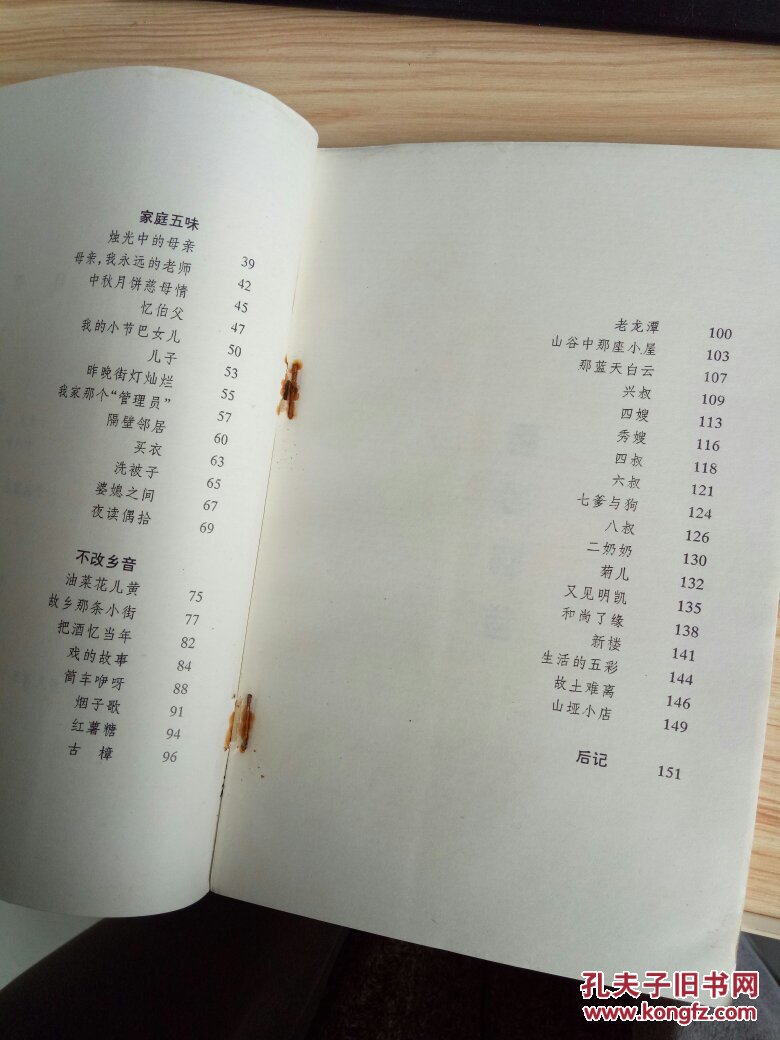 家庭五味
烛光中的母亲 39
母亲,我永远的老师 42
中秋月饼慈母情 45
忆伯父 47
我的小节巴女儿 50
儿子 53
昨晚街灯灿烂 55
我家那个“管理员” 57
隔壁邻居 60
买衣 63
洗被子 65
婆媳之间 67
夜读偶拾 69
不改乡音
油菜花儿黄 75
故乡那条小街 77
把酒忆当年 82
戏的故事 84
筒车咿呀 88
烟子歌 91
红薯糖 94
古 樟 96
老龙潭 100
山谷中那座小屋 103
那蓝天白云 107
兴叔 109
四嫂 113
秀嫂 116
四叔 118
六叔 121
七爹与狗 124
八叔 126
二奶奶 130
菊儿 132
又见明凯 135
和尚了缘 138
新楼 141
生活的五彩 144
故土难离 146
山垭小店 149
后记 151
孔夫子旧书网
www.kongfz.com